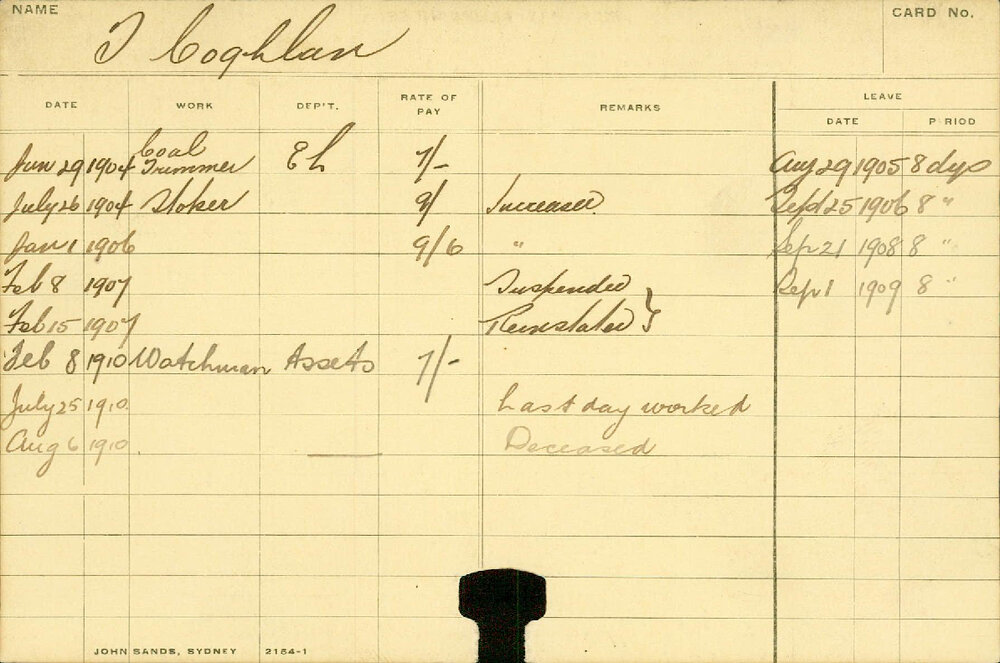 NAME
CARD No.
T Coghlan
DATE WORK DEP'T. RATE OF PAY REMARKS LEAVE
DATE P RIOD
Jun 29 1904 Coal Trimmer 7/- Aug 29 1905 8 dys
July 26 1904 Stoker 9/ Increased Sept 25 1906 8 "
Jan 1 1906 9/6 " Sep 21 1908 8 "
Feb 8 1907 Suspended Sep 1 1909 8 "
Feb 15 1907 Reinstated }
Feb 8 1910 Watchman Assets 7/-
July 25 1910 Last day worked
Aug 6 1910 Deceased
JOHN SANDS, SYDNEY 2154-1